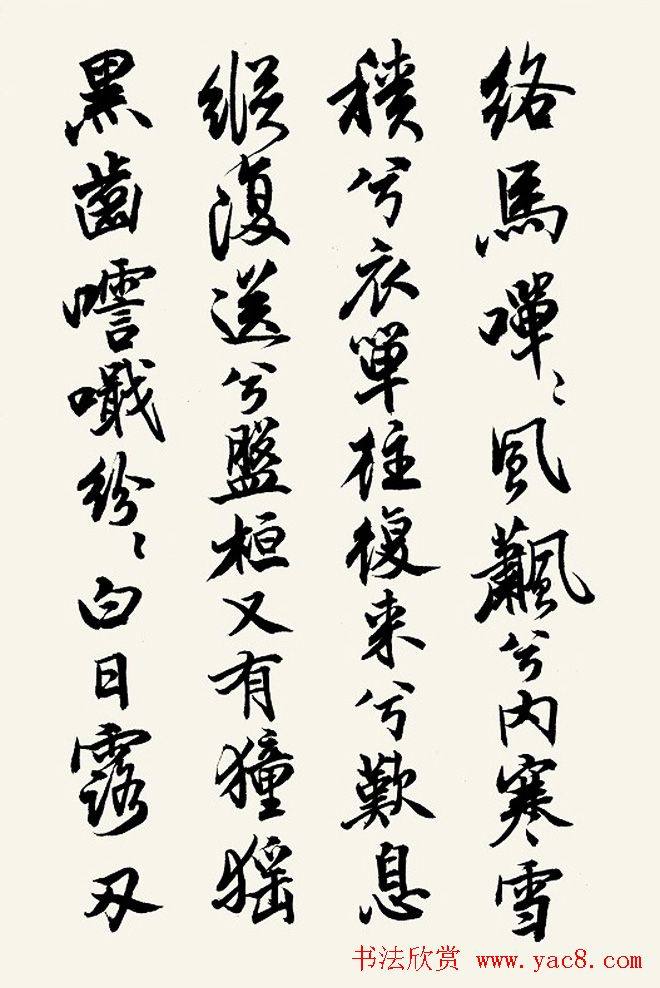 络馬嘽〻風飍兮内寒雪
積兮衣單往復来兮歎息
縱復送兮盤桓又有獞猺
黑齒嚖嘰紛〻白日露刃
书法欣赏 www.yac8.com